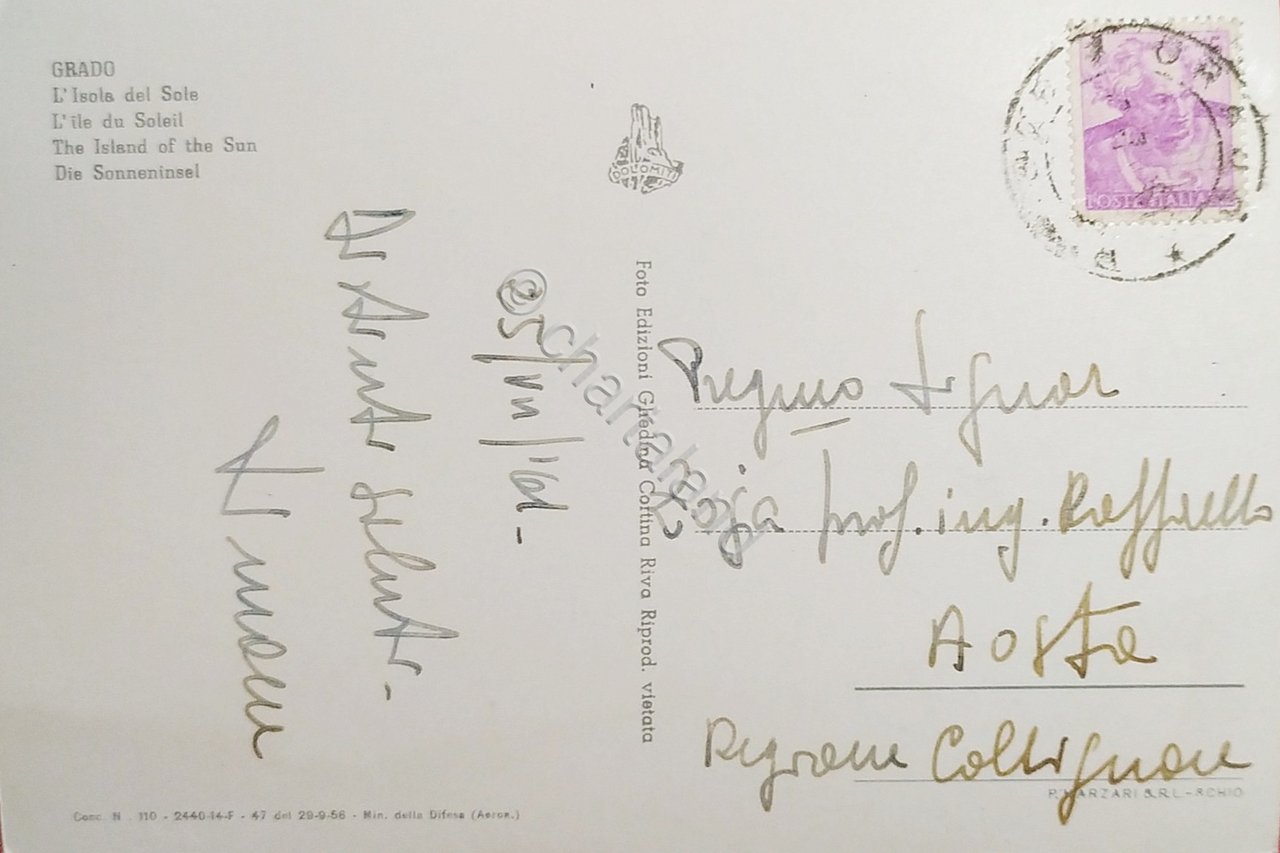 GRADO
L'Isola del Sole
L'île du Soleil
The Island of the Sun
Die Sonneninsel
DOLOMITI
15
POSTE ITALIANE
Distinti saluti -
25/VII/'61 -
Foto Edizioni Ghedina Cortina Riva Riprod. vietata
© chartaland
Preg.mo Signor
prof. ing. Raffaello
Aosta
Regione Collignon
P. MARZARI S.R.L. - SCHIO
Conc. N. 110 - 2440-14-F - 47 del 29-9-56 - Min. della Difesa (Aeron.)